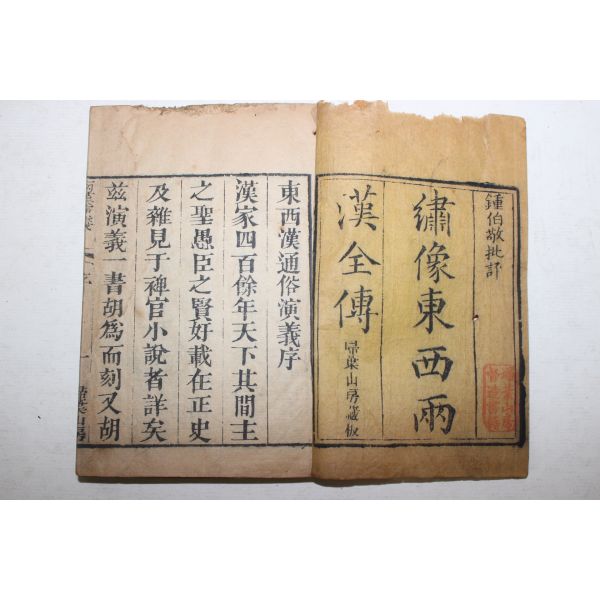 鍾伯敬批評
繡像東西兩
漢全傳
掃葉山房藏板
東西漢通俗演義序
漢家四百餘年天下其間主
之聖愚臣之賢奸載在正史
及雜見于稗官小說者詳矣
兹演義一書胡為而刻又胡
序
一